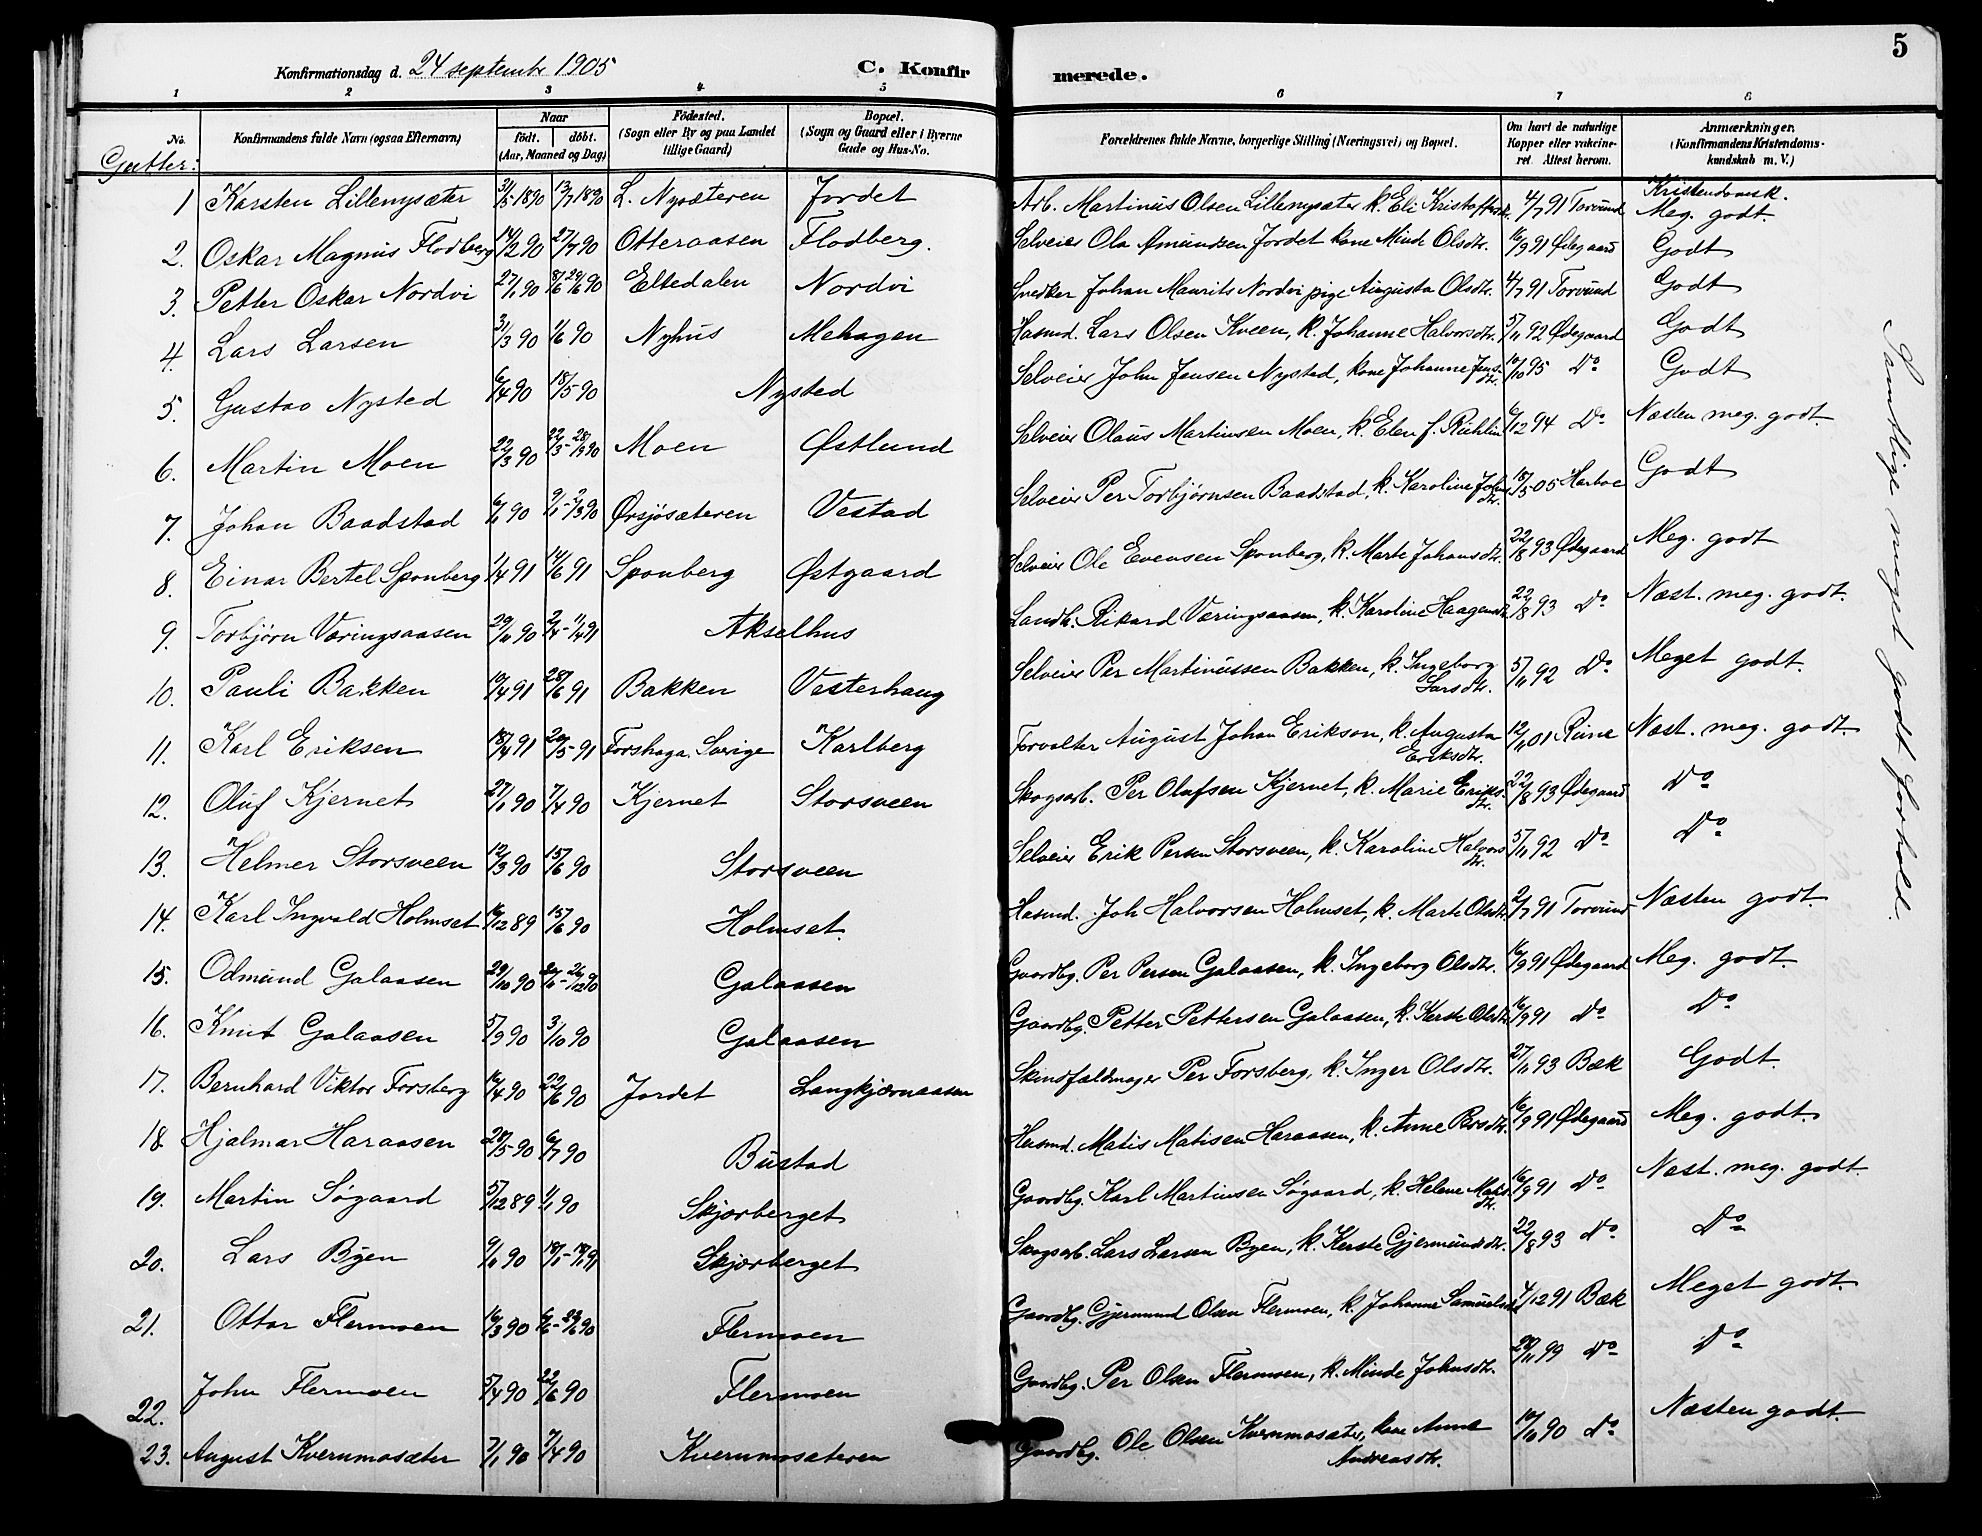 5
Konfirmationsdag d. 24 septembr 1905 C. Konfirmerede.
1 2 3 4 5 6 7 8
No. Konfirmandens fulde Navn (ogsaa Efternavn) Naar født. døbt. (Aar, Maaned og Dag) Fødested. (Sogn eller By og paa Landet tillige Gaard) Bopæl. (Sogn og Gaard eller i Byerne Gade og Hus-No. Forældrenes fulde Navne, borgerlige Stilling (Næringsvei) og Bopæl. Om havt de naturlige Kopper eller vaccineret. Attest herom. Anmærkninger. (Konfirmandens Kristendomskundskab m. V.)
Gutter:
1 Karsten Lillenysæter 31/5-1890 13/7 1890 L. Nysæteren Jordet Arb. Martinus Olsen Lillenysæter k. Eli Kristoffersd. 4/7 91 Torvund Kristendomsk. Meg. godt.
2. Oskar Magnus Flodberg 14/2 90 27/7 90 Otteraasen Flodberg. Selveier Ola Amundsen Jordet kone Minde Olsdtr. 16/9 91 Ødegaard Godt
3. Petter Oskar Nordvi 27/1 90 8/6 29/6 90 Eltedalen Nordvi Snedker Johan Maurits Nordvi pige Augusta Olsdtr. 4/7 91 Torvund Godt
4. Lars Larsen 31/3 90 1/6 90 Nyhus Mehagen Husmd. Lars Olsen Kveen, k. Johanne Halvorsdtr. 5/11 92 Ødegaard Godt
5. Gustav Nysted 6/4 90 18/5-90 Nysted Selveier John Jensen Nystad, kone Johanne Jensdtr. 10/10 95 Do Godt
6. Martin Moen 22/3 90 22/3-28/9 90 Moen Østlund Selveier Olaus Martinsen Moen, k. Elen f. Rühlin 6/12 94 Do Næsten meg. godt.
7. Johan Baadstad 6/1 90 9/1-2/3 90 Ørsjøsæteren Vestad Selveier Per Torbjørnsen Baadstad, k. Karoline Johnsdtr. 18/5 05 Harboe Godt
8. Einar Bertel Sponberg 1/4 91 14/6 91 Sponberg Østgaard Selveier Ole Evensen Sponberg, k. Marte Johansdtr. 22/8 93 Ødegaard Meg. godt
9. Torbjørn Væringsaasen 29/11 90 2/4-1/4 91 Akselhus Landh. Rikard Væringsaasen, k. Karoline Haagensdtr. 22/8 93 Do Næst. meg. godt.
10. Pauli Bakken 10/4 91 28/6 91 Bakken Vesterhaug Selveier Per Martinussen Bakken, k. Ingeborg Larsdtr. 5/11 92 Do Meget godt.
11. Karl Eriksen 18/4 91 20/5-91 Forshaga Sverige Karlberg Forvalter August Johan Erikson, k. Augusta Eriksdtr. 12/11 01 Næst. meg. godt.
12. Oluf Kjernet 27/1 90 7/4 90 Kjernet Storsveen Skogsarb. Per Olufsen Kjernet, k. Marie Eriksdtr. 22/8 93 Ødegaard Do
13. Helmer Storsveen 12/3 90 15/6 90 Storsveen Selveier Erik Persen Storsveen, k. Karoline Halvorsdtr. 5/11 92 Do Do
14. Karl Ingvald Holmset 16/12 89 15/6 90 Holmset. Husmd. Joh Halvorsen Holmset, k. Marte Olsdtr. 2/7 91 Torvund Næsten godt.
15. Odmund Galaasen 29/10 90 26/12 90 Galaasen Gaardbg. Per Persen Galaasen, k. Ingeborg Olsdtr. 16/9 91 Ødegaard Meg. godt.
16. Knut Galaasen 5/9 90 3/10 90 Galaasen Gaardbg. Petter Pettersen Galaasen, k. Kerste Olsdtr. 16/9 91 Do Do
17. Bernhard Viktor Forsberg 16/4 90 22/6 90 Jordet Langkjærnaasen Skindfældmager Per Forsberg, k. Inger Olsdtr. 27/11 93 Bæk Godt.
18. Hjalmar Haraasen 28/5-90 6/7 90 Bustad Husmd. Matis Matisen Haraasen, k. Anne Persdtr. 16/9 91 Ødegaard Meg. godt.
19. Martin Søgaard 5/12 89 1/1 90 Skjærberget Gaardbg. Karl Martinsen Søgaard, k. Helene Matisdtr. 16/9 91 Do Næst. meg. godt.
20. Lars Byen 9/1 90 Skjærberget Skogsarb. Lars Larsen Byen, k. Kerste Gjermundsdtr. 22/8 93 Do Do
21. Ottar Flermoen 16/3 90 6/6-29/6 90 Flermoen Gaardbg. Gjermund Olsen Flermoen, k. Johanne Samuelsd. 4/12 91 Bæk Meget godt.
22. John Flermoen 5/4 90 22/6 90 Flermoen Gaardbg. Per Olsen Flermoen, k. Minde Johnsdtr. 28/11 99 Do Do
23. August Kvernmosæter 7/1 90 7/4 90 Kvernmosæteren Gaardbg. Ole Olsen Kvernmosæter, kone Anne Andreasdtr. 10/11 90 Do Næsten godt.
Samtlige meget godt forhold.